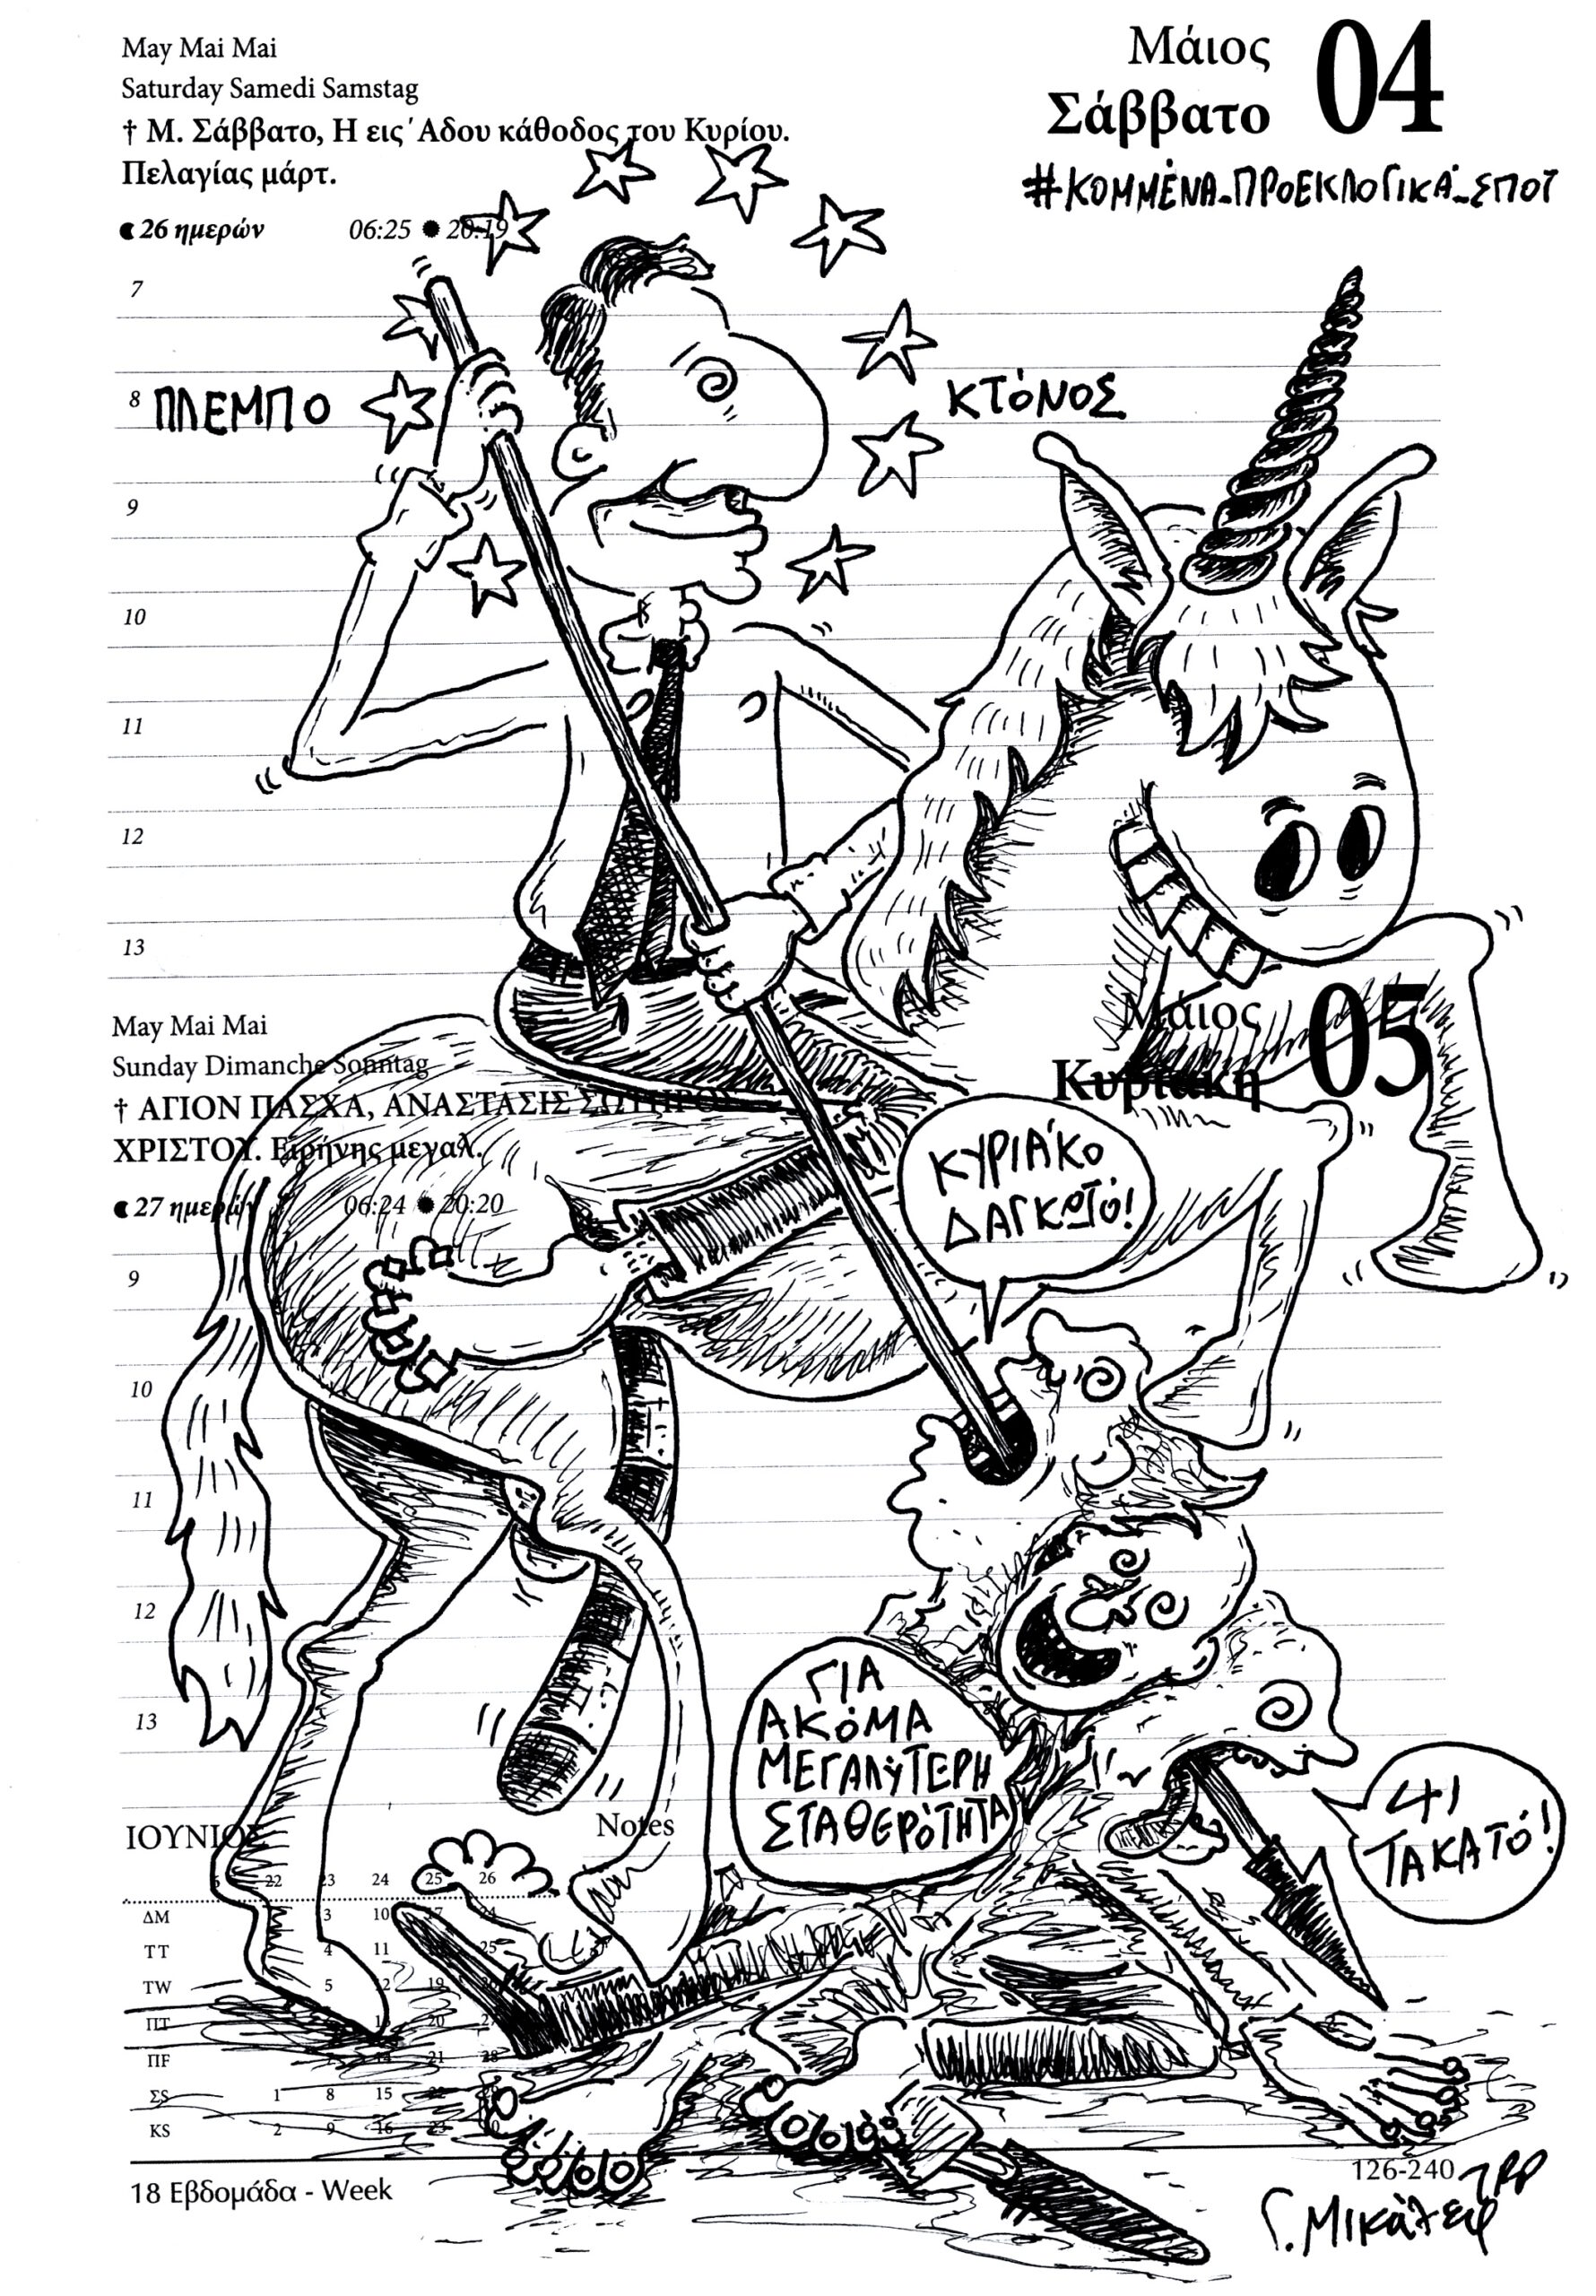 May Mai Mai
Saturday Samedi Samstag
† Μ. Σάββατο, Η εις ΄Αδου κάθοδος του Κυρίου.
Πελαγίας μάρτ.
26 ημερών 06:25 20:19
Μάιος
Σάββατο 04
#ΚΟΜΜΈΝΑ_ΠΡΟΕΚΛΟΓΙΚΆ_ΣΠΟΤ
7
8
ΠΛΕΜΠΟ
ΚΤΌΝΟΣ
9
10
11
12
13
May Mai Mai
Sunday Dimanche Sonntag
† ΑΓΙΟΝ ΠΑΣΧΑ, ΑΝΑΣΤΑΣΙΣ ΣΩΤΗΡΟΣ
ΧΡΙΣΤΟΥ. Ειρήνης μεγαλ.
27 ημερών 06:24 20:20
Μάιος
Κυριακή 05
ΚΥΡΙΆΚΟ
ΔΑΓΚΩΤΌ!
9
10
11
12
13
ΓΙΑ
ΑΚΌΜΑ
ΜΕΓΑΛΎΤΕΡΗ
ΣΤΑΘΕΡΌΤΗΤΑ
41
ΤΑΚΑΤΌ!
ΙΟΥΝΙΟΣ
Notes
22 23 24 25 26
ΔΜ 3 10 17 24
ΤΤ 4 11 25
ΤW 5 12 19 26
ΠΤ 13 20 27
ΠF 14 21 28
ΣS 1 8 15 22 29
KS 2 9 16 23 30
18 Εβδομάδα - Week
126-240
Γ. Μικάλεφ